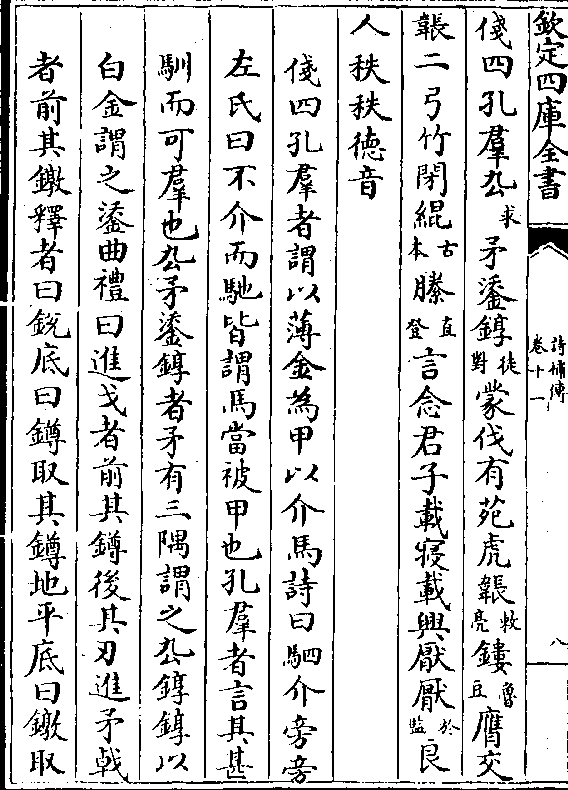 欽定四庫全書
詩補傳
卷十一
八
俴四孔羣厹求矛鋈錞徒對蒙伐有苑虎韔敕亮鏤魯豆膺交
韔二弓竹閉緄古本縢直登言念君子載寢載興厭厭於監良
人秩秩德音
俴四孔羣者謂以薄金為甲以介馬詩曰駟介旁旁
左氏曰不介而馳皆謂馬當被甲也孔羣者言其甚
馴而可羣也厹矛鋈錞者矛有三隅謂之厹錞錞以
白金謂之鋈曲禮曰進戈者前其鐏後其刃進矛戟
者前其鐓釋者曰銳底曰鐏取其鐏地平底曰鐓取